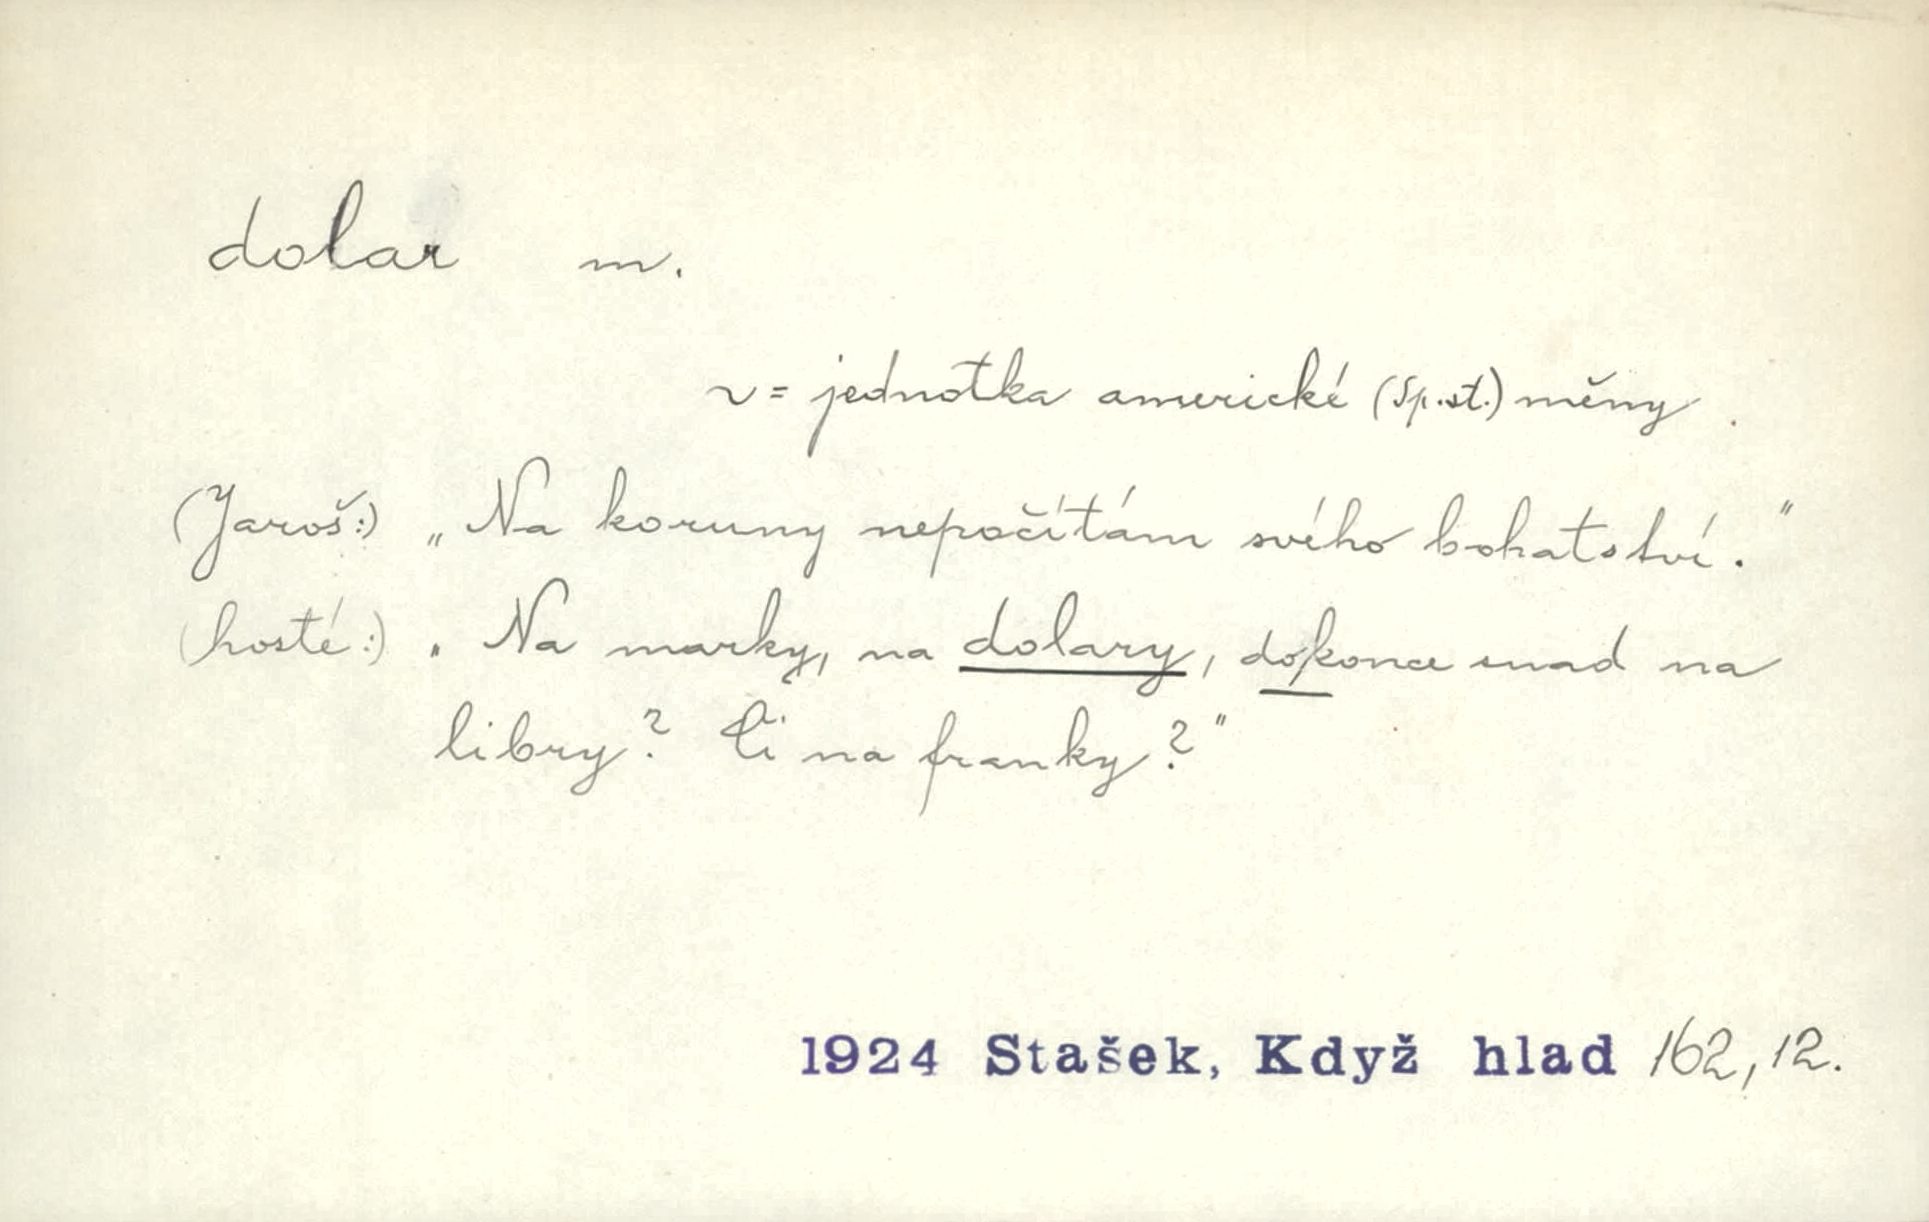 dolar m.
~ = jednotka americké (Sp. st.) měny
(Jaroš:) „Na koruny nepočítám svého bohatství."
(hosté:) „Na marky, na dolary, dokonce snad na
libry? Či na franky?"
1924 Stašek, Když hlad 162,12.